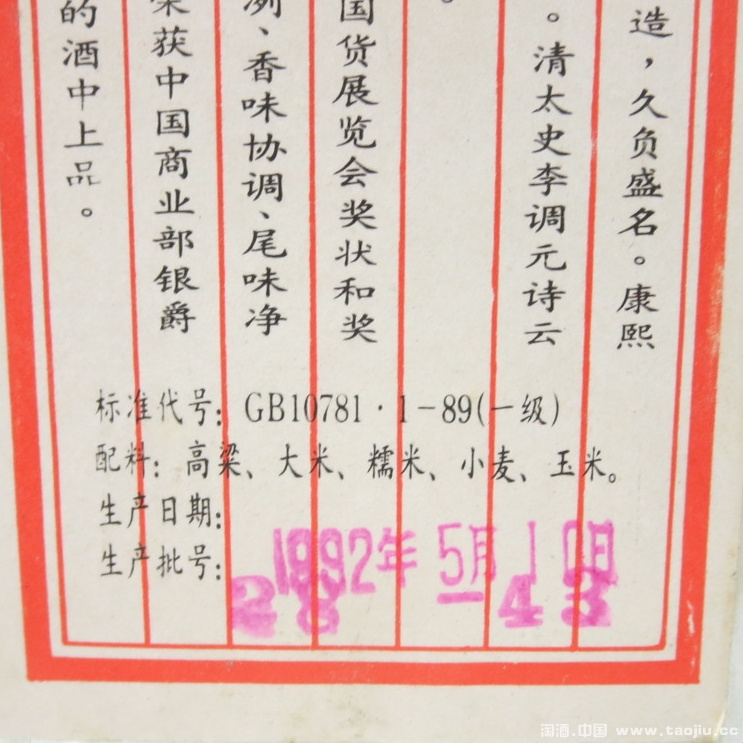 造，久负盛名。康熙
。清太史李调元诗云
。
国货展览会奖状和奖
冽、香味协调、尾味净
荣获中国商业部银爵
的酒中上品。
标准代号：GB10781·1-89(一级)
配料：高粱、大米、糯米、小麦、玉米。
生产日期：1992年 5月10日
生产批号：28-43
淘酒.中国 www.taojiu.cc